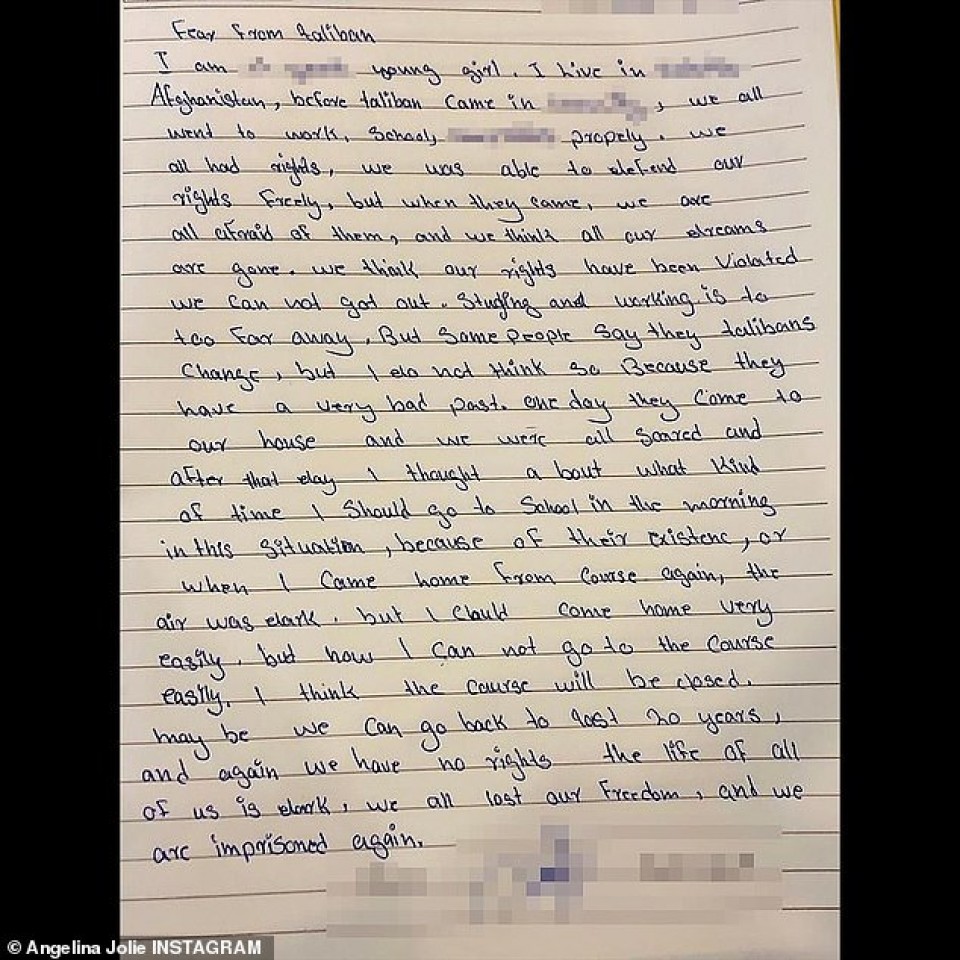 Fear from taliban
I am young girl. I live in
Afghanistan, before taliban came in , we all
went to work, School, propely. we
all had rights, we was able to defend our
rights freely, but when they came, we are
all afraid of them, and we think all our dreams
are gone. we think our rights have been violated
we can not got out. Studing and working is to
too far away. But Some people Say they talibans
Change, but I do not think So Because they
have a very bad past. one day they come to
our house and we were all scared and
after that day I thought a bout what kind
of time I Should go to School in the morning
in this situation, because of their existenc, or
when I came home from course again, the
air was dark. but I could come home very
easily. but now I can not go to the course
easily. I think the course will be closed.
may be we can go back to last 20 years,
and again we have no rights the life of all
of us is dark, we all lost our freedom, and we
are imprisoned again.
© Angelina Jolie INSTAGRAM